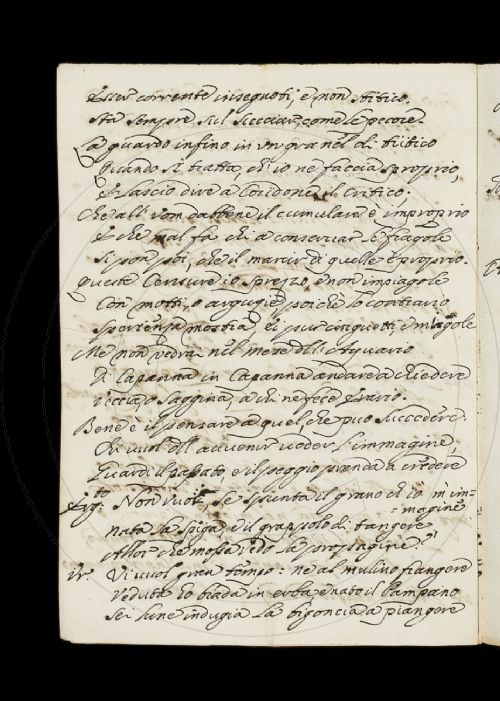 Esser corrente in segnoti, e non stitico.
Sta sempre sul succiar, come le pecore.
La guardo infino in un granel di tritico
Quando si tratta, ch'io ne faccia sproprio,
E lascio dire a Coridone il Critico:
Che all'uom dabbene il cumulare è improprio
E che mal fa chi a conservar le fragole
Si pon poi, che il marcir a quelle è proprio.
Queste Censure io sprezzo, e non impiagole
Con motti, o arguzie, poiche lo contrario
Sperienza mostra, ei pur cinguetti, e miagole
Me non vedrà nel mese dell'Aquario
Di Capanna in Capanna andare a chiedere
Veccia, o Saggina, a chi ne fece Erario.
Bene è il pensare a quel che può succedere.
Chi vuol dell'avvenir veder l'immagine,
Guardi il passato, e il peggio prenda a credere
Erg.to Non vuoi, se spunta il grano ch'io m'im=
=magine
nata la Spiga, e il grappolo di tangere
Allor che mossa vedo la propagine?
Ur. Vi vuol gran tempo: ne al mulino frangere
Veduta ho biada in erba, e nato il Pampano
Se l'une indugia la bigoncia a piangere